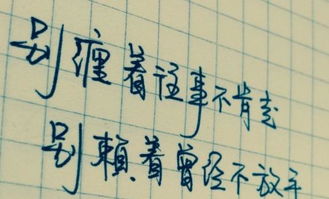 别缠着往事不肯走
别賴着曾经不放手